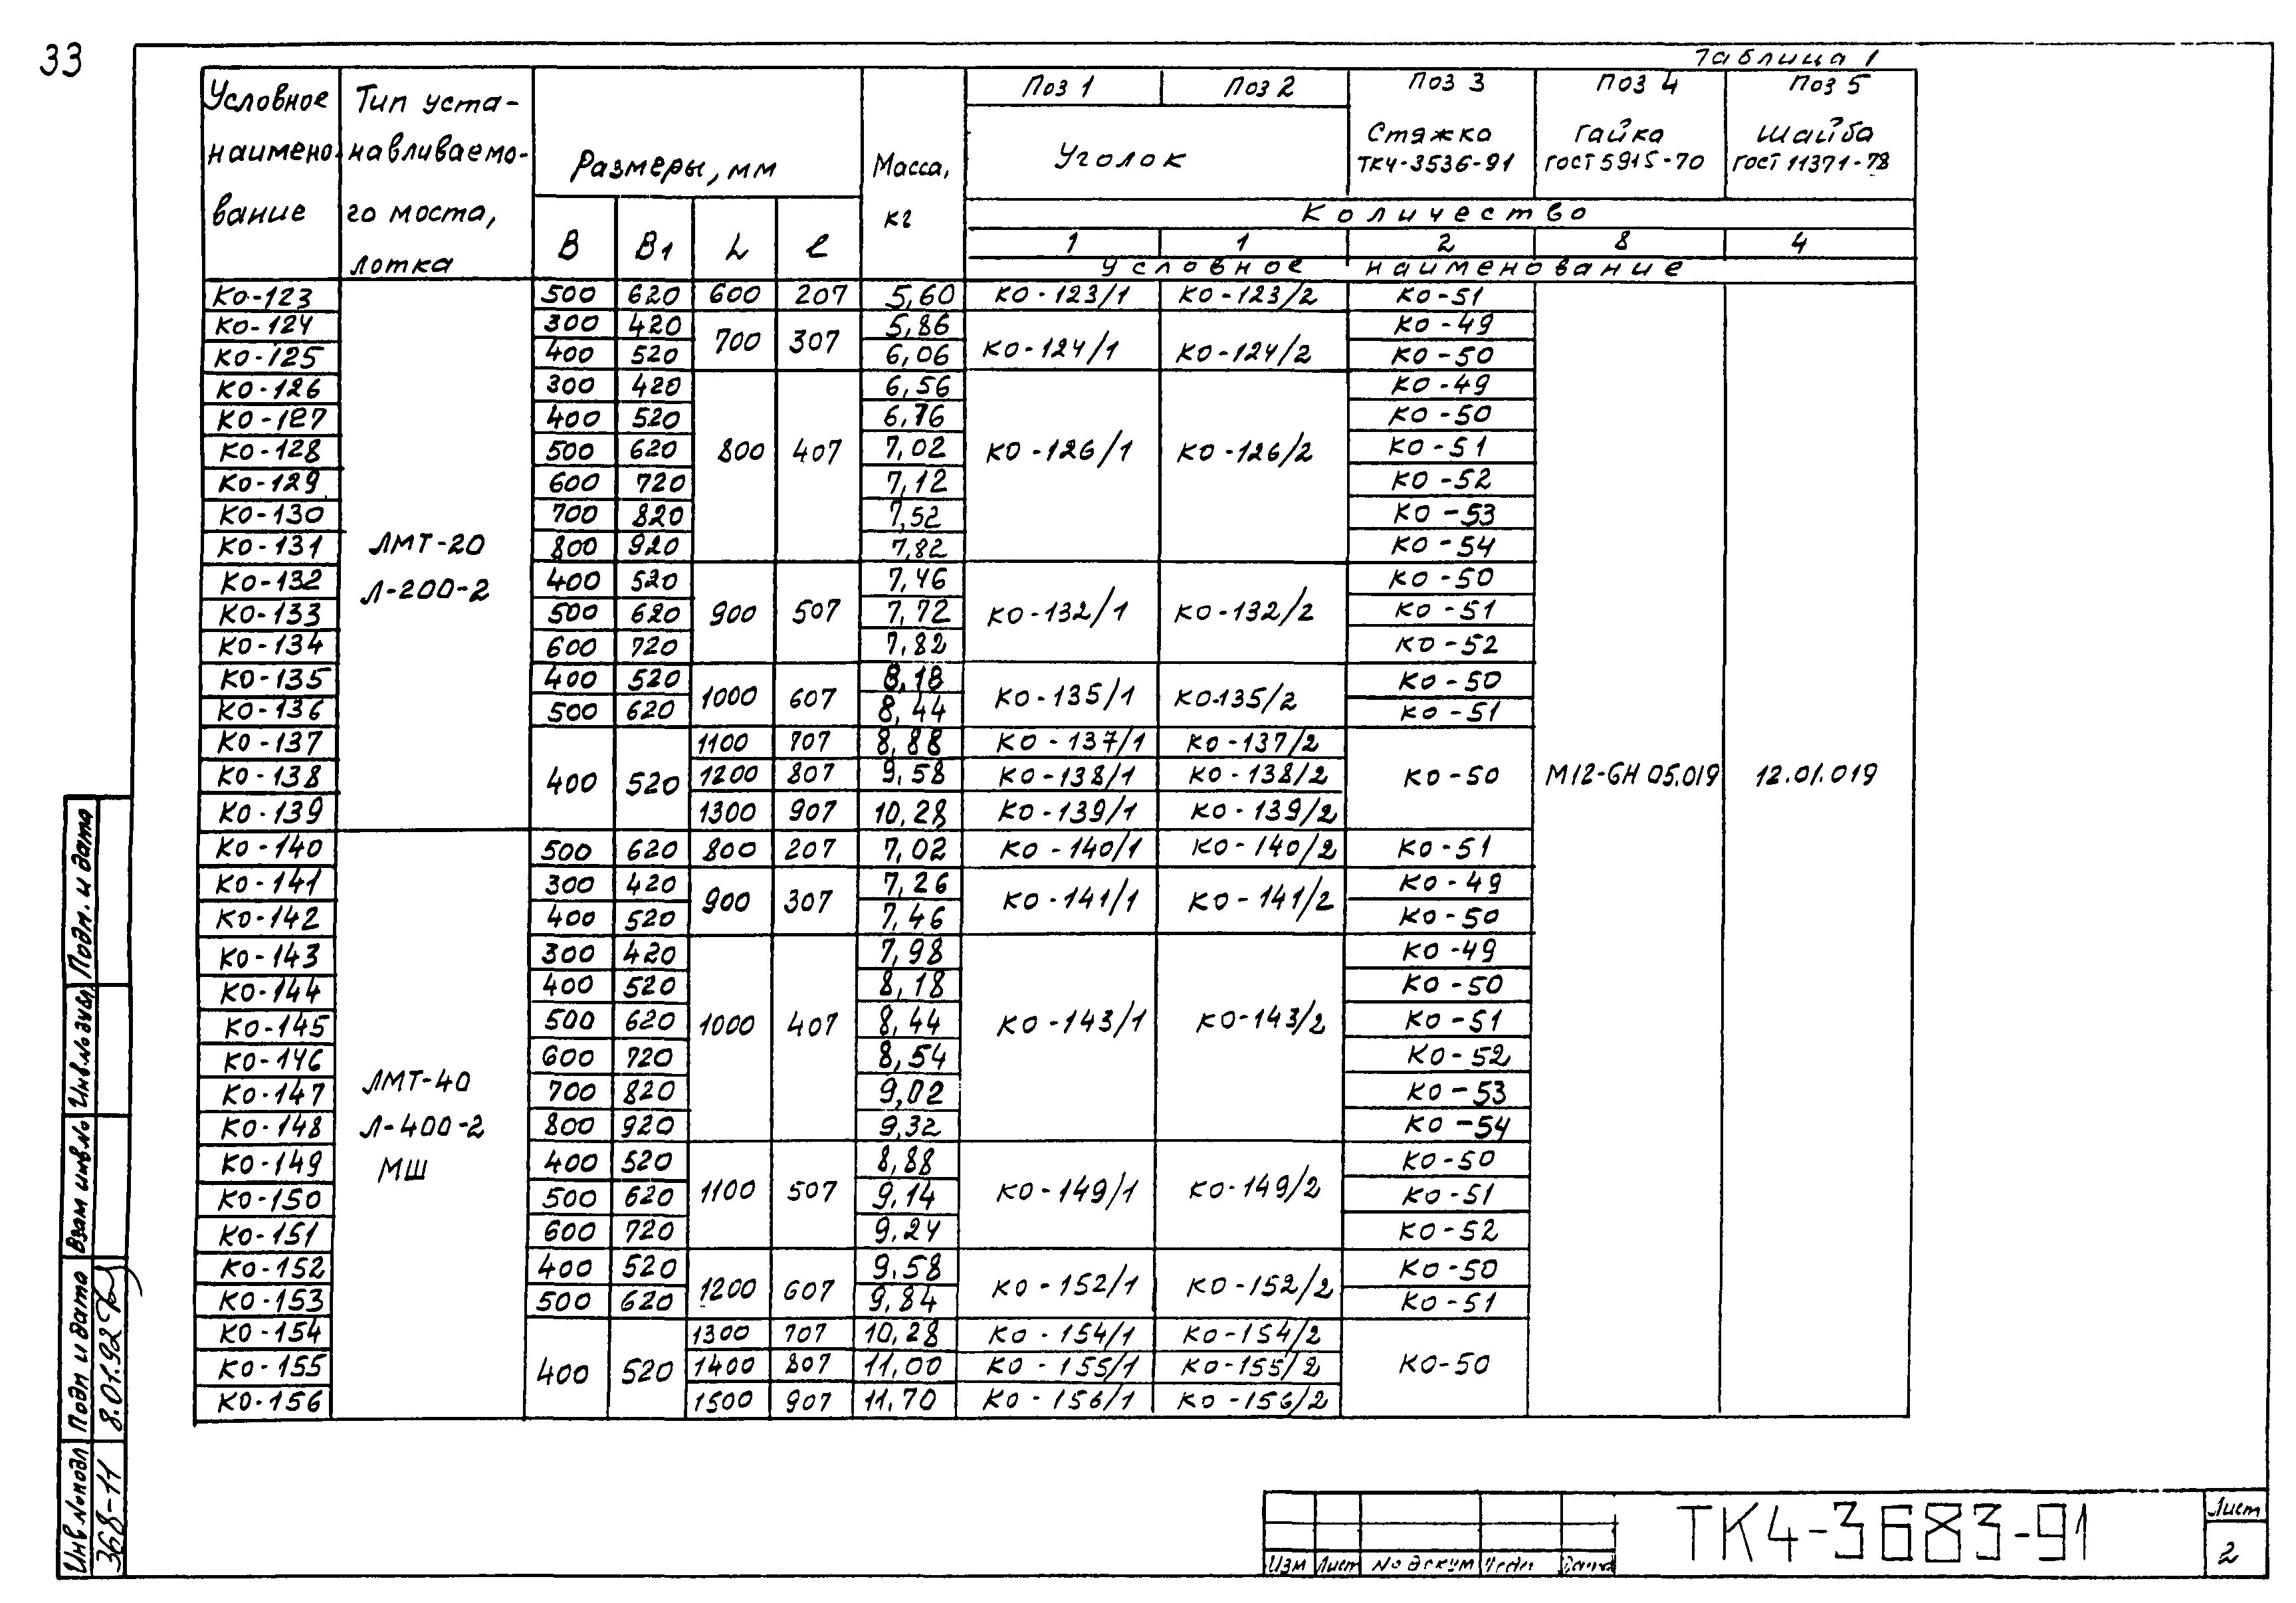 33
Таблица 1
Условное наименование | Тип устанавливаемого моста, лотка | Размеры, мм | Масса, кг | Поз 1 | Поз 2 | Поз 3 | Поз 4 | Поз 5
Уголок | Стяжко ТК4-3536-91 | Гайка ГОСТ 5915-70 | Шайба ГОСТ 11371-78
Количество
B | B1 | L | ℓ | 1 | 1 | 2 | 8 | 4
Условное наименование
КО-123 | 500 | 620 | 600 | 207 | 5,60 | КО-123/1 | КО-123/2 | КО-51
КО-124 | 300 | 420 | 700 | 307 | 5,86 | КО-124/1 | КО-124/2 | КО-49
КО-125 | 400 | 520 | 6,06 | КО-50
КО-126 | 300 | 420 | 6,56 | КО-49
КО-127 | 400 | 520 | 6,76 | КО-50
КО-128 | 500 | 620 | 800 | 407 | 7,02 | КО-126/1 | КО-126/2 | КО-51
КО-129 | 600 | 720 | 7,12 | КО-52
КО-130 | 700 | 820 | 7,52 | КО-53
КО-131 | ЛМТ-20 | 800 | 920 | 7,82 | КО-54
КО-132 | Л-200-2 | 400 | 520 | 7,46 | КО-50
КО-133 | 500 | 620 | 900 | 507 | 7,72 | КО-132/1 | КО-132/2 | КО-51
КО-134 | 600 | 720 | 7,82 | КО-52
КО-135 | 400 | 520 | 1000 | 607 | 8,18 | КО-135/1 | КО-135/2 | КО-50
КО-136 | 500 | 620 | 8,44 | КО-51
КО-137 | 1100 | 707 | 8,88 | КО-137/1 | КО-137/2
КО-138 | 400 | 520 | 1200 | 807 | 9,58 | КО-138/1 | КО-138/2 | КО-50 | М12-6Н 05.019 | 12.01.019
КО-139 | 1300 | 907 | 10,28 | КО-139/1 | КО-139/2
КО-140 | 500 | 620 | 800 | 207 | 7,02 | КО-140/1 | КО-140/2 | КО-51
КО-141 | 300 | 420 | 900 | 307 | 7,26 | КО-141/1 | КО-141/2 | КО-49
КО-142 | 400 | 520 | 7,46 | КО-50
КО-143 | 300 | 420 | 7,98 | КО-49
КО-144 | 400 | 520 | 8,18 | КО-50
КО-145 | 500 | 620 | 1000 | 407 | 8,44 | КО-143/1 | КО-143/2 | КО-51
КО-146 | 600 | 720 | 8,54 | КО-52
КО-147 | ЛМТ-40 | 700 | 820 | 9,02 | КО-53
КО-148 | Л-400-2 | 800 | 920 | 9,32 | КО-54
КО-149 | МШ | 400 | 520 | 8,88 | КО-50
КО-150 | 500 | 620 | 1100 | 507 | 9,14 | КО-149/1 | КО-149/2 | КО-51
КО-151 | 600 | 720 | 9,24 | КО-52
КО-152 | 400 | 520 | 1200 | 607 | 9,58 | КО-152/1 | КО-152/2 | КО-50
КО-153 | 500 | 620 | 9,84 | КО-51
КО-154 | 1300 | 707 | 10,28 | КО-154/1 | КО-154/2
КО-155 | 400 | 520 | 1400 | 807 | 11,00 | КО-155/1 | КО-155/2 | КО-50
КО-156 | 1500 | 907 | 11,70 | КО-156/1 | КО-156/2
Инв № подл | Подп и дата | Взам инв.№ | Инв.№ дубл | Подп. и дата
368-11 | 8.01.92
Изм | Лист | № докум | Подп | Дата
ТК4-3683-91
Лист
2